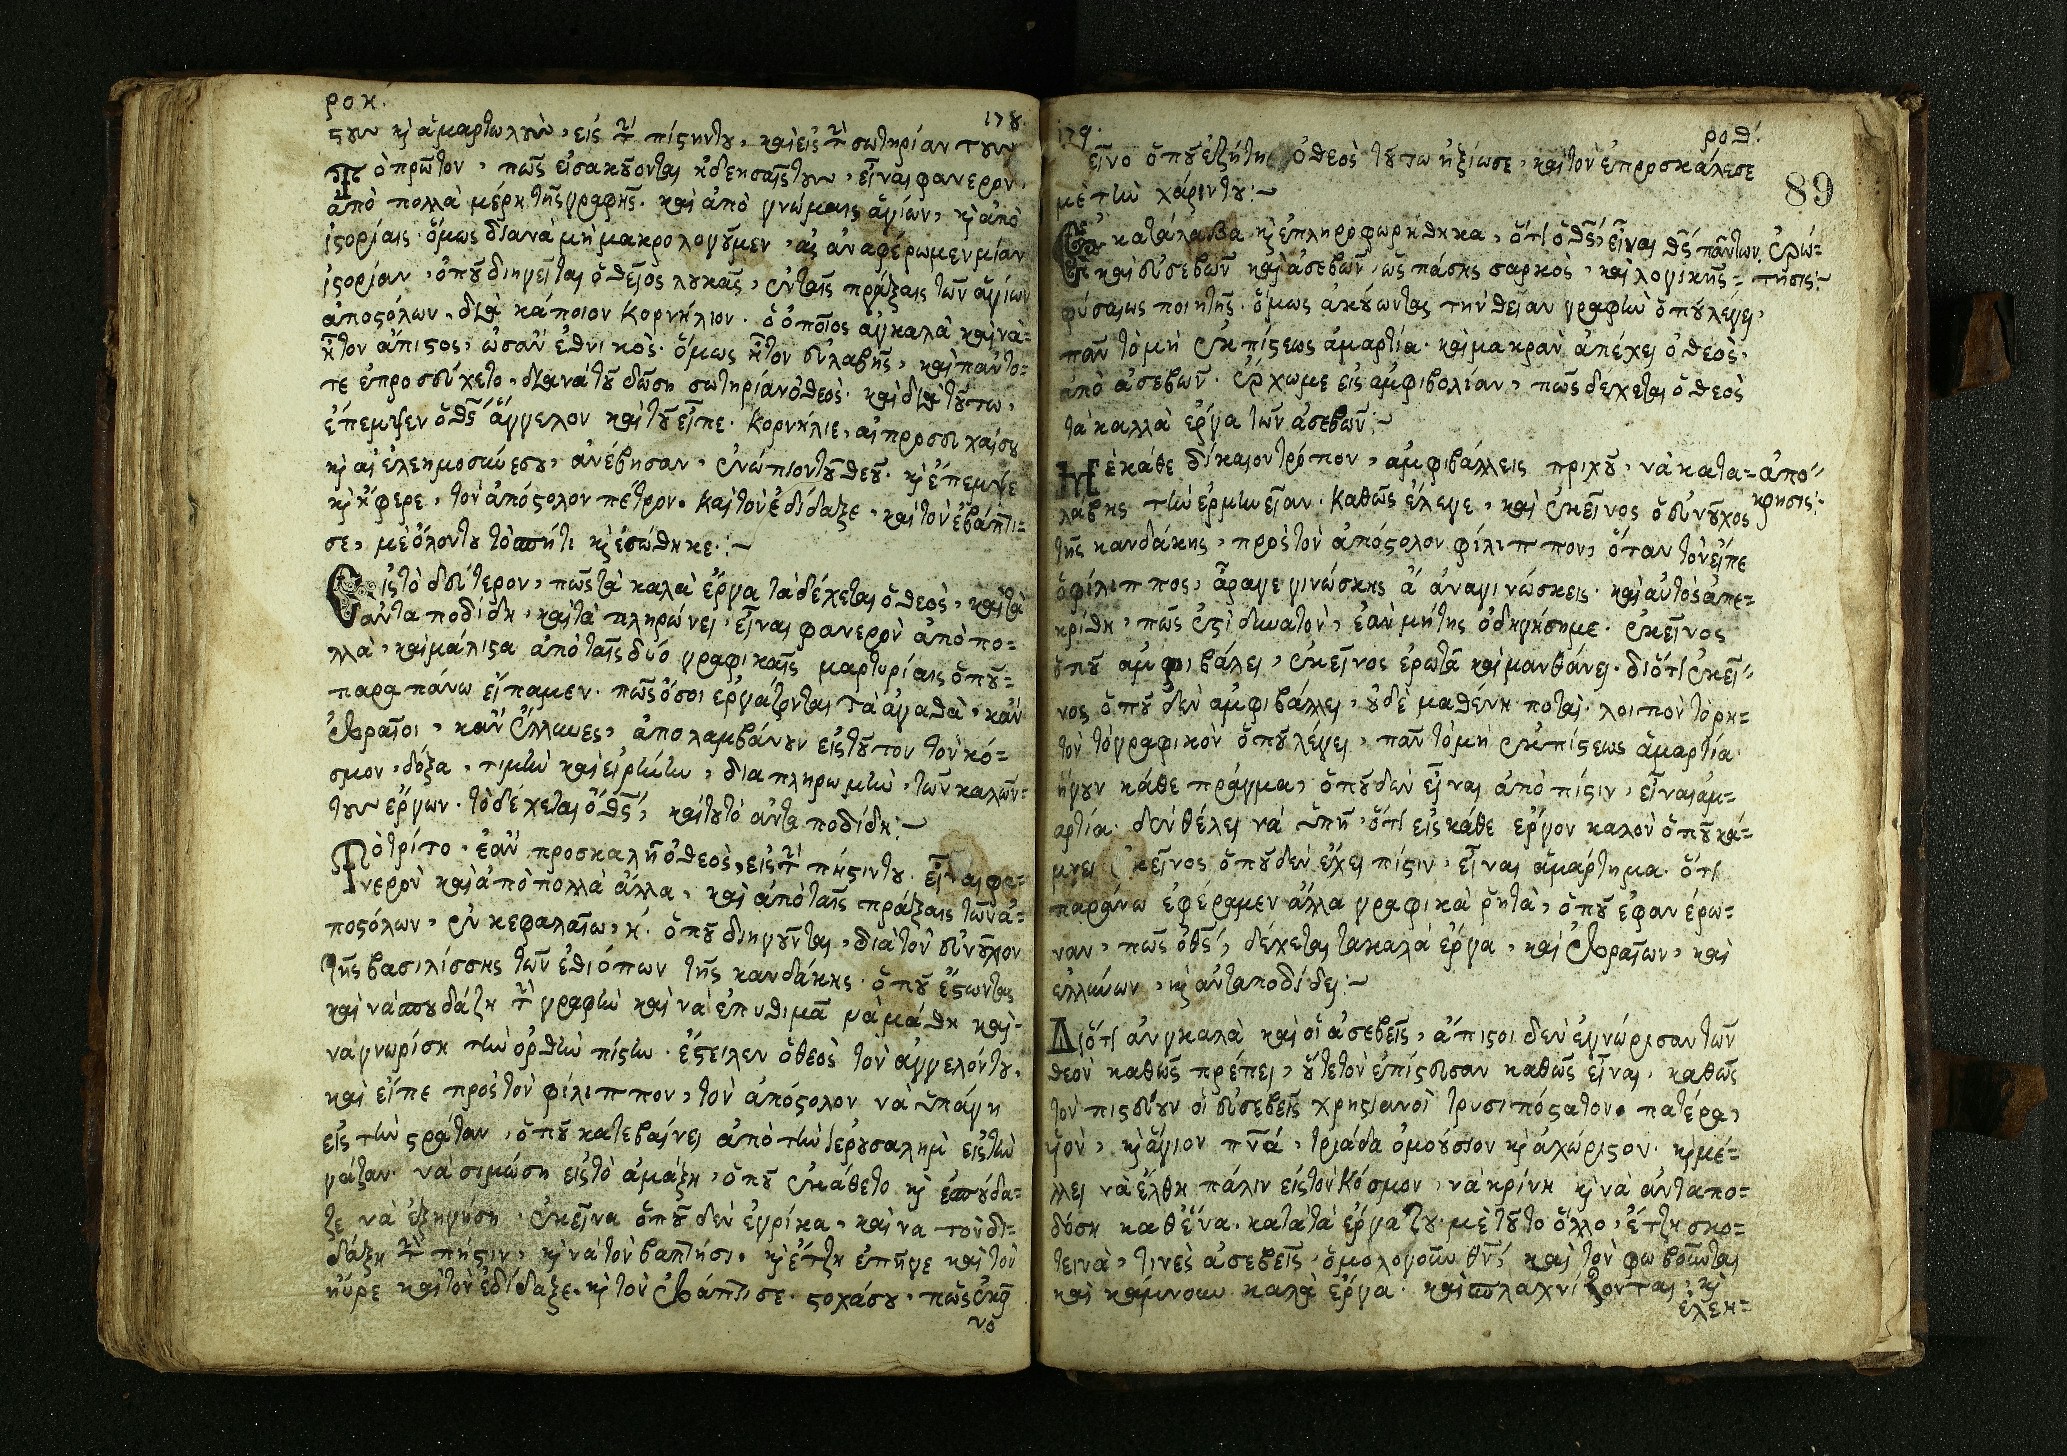 ροη.
178.
στων κ̀ ἁμαρτωλῶν, εἰς τὴ πίστηντου, καὶ εἰς τὴ σωτηρίαν των
Τὸ πρῶτον, πῶς εἰσακούονται ᾑ δεησαίςτων, εἶναι φανερον,
ἀπὸ πολλὰ μέρη τῆς γραφῆς. καὶ ἀπὸ γνώμαις ἁγίων, κ̀ ἀπὸ
ἱστορίαις. ὅμως διανὰ μὴ μακρολογοῦμεν, ἂς ἀναφέρωμεν μίαν
ἱστορίαν, ὁποῦ διηγεῖται ὁ θεῖος λουκᾶς, ἐν ταῖς πράξαις τῶν ἁγίων
ἀποστόλων, διὰ κάποιον Κορνήλιον. ὁ ὁποῖος ἀγκαλὰ καὶ νὰ-
ἦτον ἄπιστος, ὡσὰν ἐθνικὸς. ὅμως ἦτον εὐλαβῆς, καὶ πάντο=
τε ἐπροσεύχετο, διὰ νὰ τοῦ δώση σωτηρίαν ὁ θεὸς. καὶ διὰ τοῦτω,
ἔπεμψεν ὁ θς̄ ἄγγελον καὶ τοῦ εἶπε. Κορνήλιε, αἱ προσευχαίσου
κ̀ αἱ ἐλεημοσύνεσου, ἀνέβησαν, ἐνώπιον τοῦ θεοῦ. κ̀ ἔπεμψε
κ̀ ἤφερε, τὸν ἀπόστολον πέτρον. καὶ τὸν ἐδίδαξε, καὶ τὸν ἐβάπτι=
σε, μὲ ὅλοντου τὸ σπήτι κ̀ ἐσώθηκε:~
Εἰς τὸ δεύτερον, πῶς τὰ καλὰ ἔργα τὰ δέχεται ὁ θεὸς, καὶ τὰ
ἀνταποδίδη, καὶ τὰ πληρώνει, εἶναι φανερὸν ἀπὸ πο=
λλὰ, καὶ μάλιστα ἀπὸ ταῖς δύο γραφικαῖς μαρτυρίαις ὁποῦ=
παραπάνω εἴπαμεν. πῶς ὅσοι ἐργάζονται τὰ ἀγαθὰ, κἂν
ἑβραῖοι, κἂν ἕλληνες, ἀπολαμβάνουν εἰς τοῦτον τὸν κό=
σμον, δόξα, τιμὴν καὶ εἰρήνην, δια πληρωμὴν, τῶν καλῶν=
των ἔργων. τὸ δέχεται ὁ θς̄, καὶ τουτὸ ἀνταποδίδη:~
Τὸ τρίτο. ἐὰν προσκαλῆ ὁ θεὸς, εἰς τὴ πήστιντου. εἶναι φα=
νερὸν καὶ ἀπὸ πολλὰ ἄλλα, καὶ ἀπὸ ταῖς πράξαις τῶν ἀ=
ποστόλων, ἐν κεφαλαίω, η. ὁποῦ διηγοῦνται, διὰ τὸν εὐνοῦχον
τῆς βασιλίσσης τῶν ἐθιόπων τῆς κανδάκης. ὁποῦ ἔστωντας
καὶ νὰ σπουδάζη τὴ γραφὴν καὶ νὰ ἐπυθιμᾶ νὰ μάθη καὶ-
νὰ γνωρίση τὴν ὀρθὴν πίστιν. ἔστειλεν ὁ θεὸς τὸν ἀγγελόντου,
καὶ εἶπε πρὸς τὸν φίλιππον, τὸν ἀπόστολον νὰ ὑπάγη
εἰς τὴν στράταν, ὁποῦ κατεβαίνει ἀπὸ τὴν ἱερουσαλὴμ εἰς τὴν
γάζαν. νὰ σιμώση εἰς τὸ ἁμάξη, ὁποῦ ἐκάθετο κ̀ ἐσπούδα=
ζε νὰ ἐξηγήση. ἐκεῖνα ὁποῦ δεν ἐγρίκα, καὶ να τοῦ δι=
δάξη τὴ πήστιν, κ̀ νὰ τὸν βαπτήση. κ̀ ἔτζη ἐπῆγε καὶ τὸν
ηὗρε καὶ τὸν ἐδίδαξε, κ̀ τὸν ἐβάπτισε. στοχάσου, πῶς ἐκεῖ
νο
179.
ροθ'.
89
εῖνο ὁποῦ ἐζήτη ὁ θεὸς τοῦτω ἠξίωσε, καὶ τὸν ἐπροσκάλεσε
μὲ τὴν χάριντου:~
Ἐκατάλαβα κ̀ ἐπληροφωρήθηκα, ὅτι ὁ θς̄, εἶναι θς̄ πάντων, Ἐρώ=
καὶ εὐσεβῶν καὶ ἀσεβῶν, ὡς πάσης σαρκὸς, καὶ λογικῆς= τησις:~
φύσαιως ποιητῆς. ὅμως ἀκούωντας τὴν θείαν γραφὴν ὁποῦ λέγει,
πᾶν τὸ μὴ ἐκ πίστεως ἁμαρτία. καὶ μακρὰν ἀπέχει ὁ θεὸς,
ἀπὸ ἀσεβῶν. ἔρχωμε εἰς ἀμφιβολίαν, πῶς δέχεται ὁ θεὸς
τὰ καλλὰ ἔργα τῶν ἀσεβῶν:~
Μὲ κάθε δίκαιον τρόπον, ἀμφιβάλλεις πριχοῦ, νὰ κατα= ἀπό=
λάβης τὴν ἑρμηνείαν. καθὼς ἔλεγε, καὶ ἐκεῖνος ὁ εὐνοῦχος κρησις:~
τῆς κανδάκης, πρὸς τὸν ἀπόστολον φίλιππον, ὅταν τὸν εἶπε
ὁ φίλιππος, ἆραγε γινώσκης ἃ ἀναγινώσκεις. καὶ αὐτὸς ἀπε=
κρίθη, πῶς ἐστὶ δυνατὸν, ἐὰν μήτης ὁδηγήσημε. ἐκεῖνος
ὁποῦ ἀμφιβάλει, ἐκεῖνος ἐρωτᾶ καὶ μανθάνει. διότι ἐκεῖ=
νος ὁποῦ δὲν ἀμφιβάλλει, οὐδὲ μαθένη ποταὶ. λοιπὸν τὸ ρη=
τὸν τὸ γραφικὸν ὁποῦ λέγει, πᾶν τὸ μὴ ἐκ πίστεως ἁμαρτία
ἤγουν κάθε πράγμα, ὁποῦ δεν εἶναι ἀπὸ πίστιν, εἶναι ἁμ=
αρτία. δὲν θέλει νὰ εἰπῆ, ὅτι εἰς κάθε ἔργον καλὸν ὁποῦ κά=
μνει ἐκεῖνος ὁποῦ δεν ἔχει πίστιν, εἶναι ἁμάρτημα. ὅτι
παράνω ἐφέραμεν ἄλλα γραφικὰ ῥητὰ, ὁποῦ ἐφανέρω=
ναν, πῶς ὁ θς̄, δέχεται τακαλὰ ἔργα, καὶ Ἑβραίων, καὶ
ἑλλήνων, κ̀ ἀνταποδίδει:~
Διότι ἀνγκαλὰ καὶ οἱ ἀσεβεῖς, ἄπιστοι δὲν ἐγνώρισαν τὼν
θεὸν καθὼς πρέπει, οὔτε τὸν ἐπίστευσαν καθὼς εἶναι, καθὼς
τὸν πιστεύουν οἱ εὐσεβεῖς χρηστιανοὶ τρυσιπόστατον. πατέρα,
υἱὸν, κ̀ ἅγιον πν̄ά, τριάδα ὁμούσιον κ̀ ἀχώριστον. κ̀ μέ=
λλει νὰ ἔλθη πάλιν εἰς τὸν Κόσμον, νὰ κρίνη κ̀ νὰ ἀνταπο=
δώση καθ' ἕνα. κατὰ τὰ ἔργα του. μὲ τοῦτο ὅλλο, ἔτζη σκο=
τεινὰ, τινὲς ἀσεβεῖς, ὁμολογοῦν θν̄, καὶ τὸν φωβοῦνται
καὶ κάμνουν καλὰ ἔργα. καὶ σπλαχνίζονται, κ̀
ἐλεη=